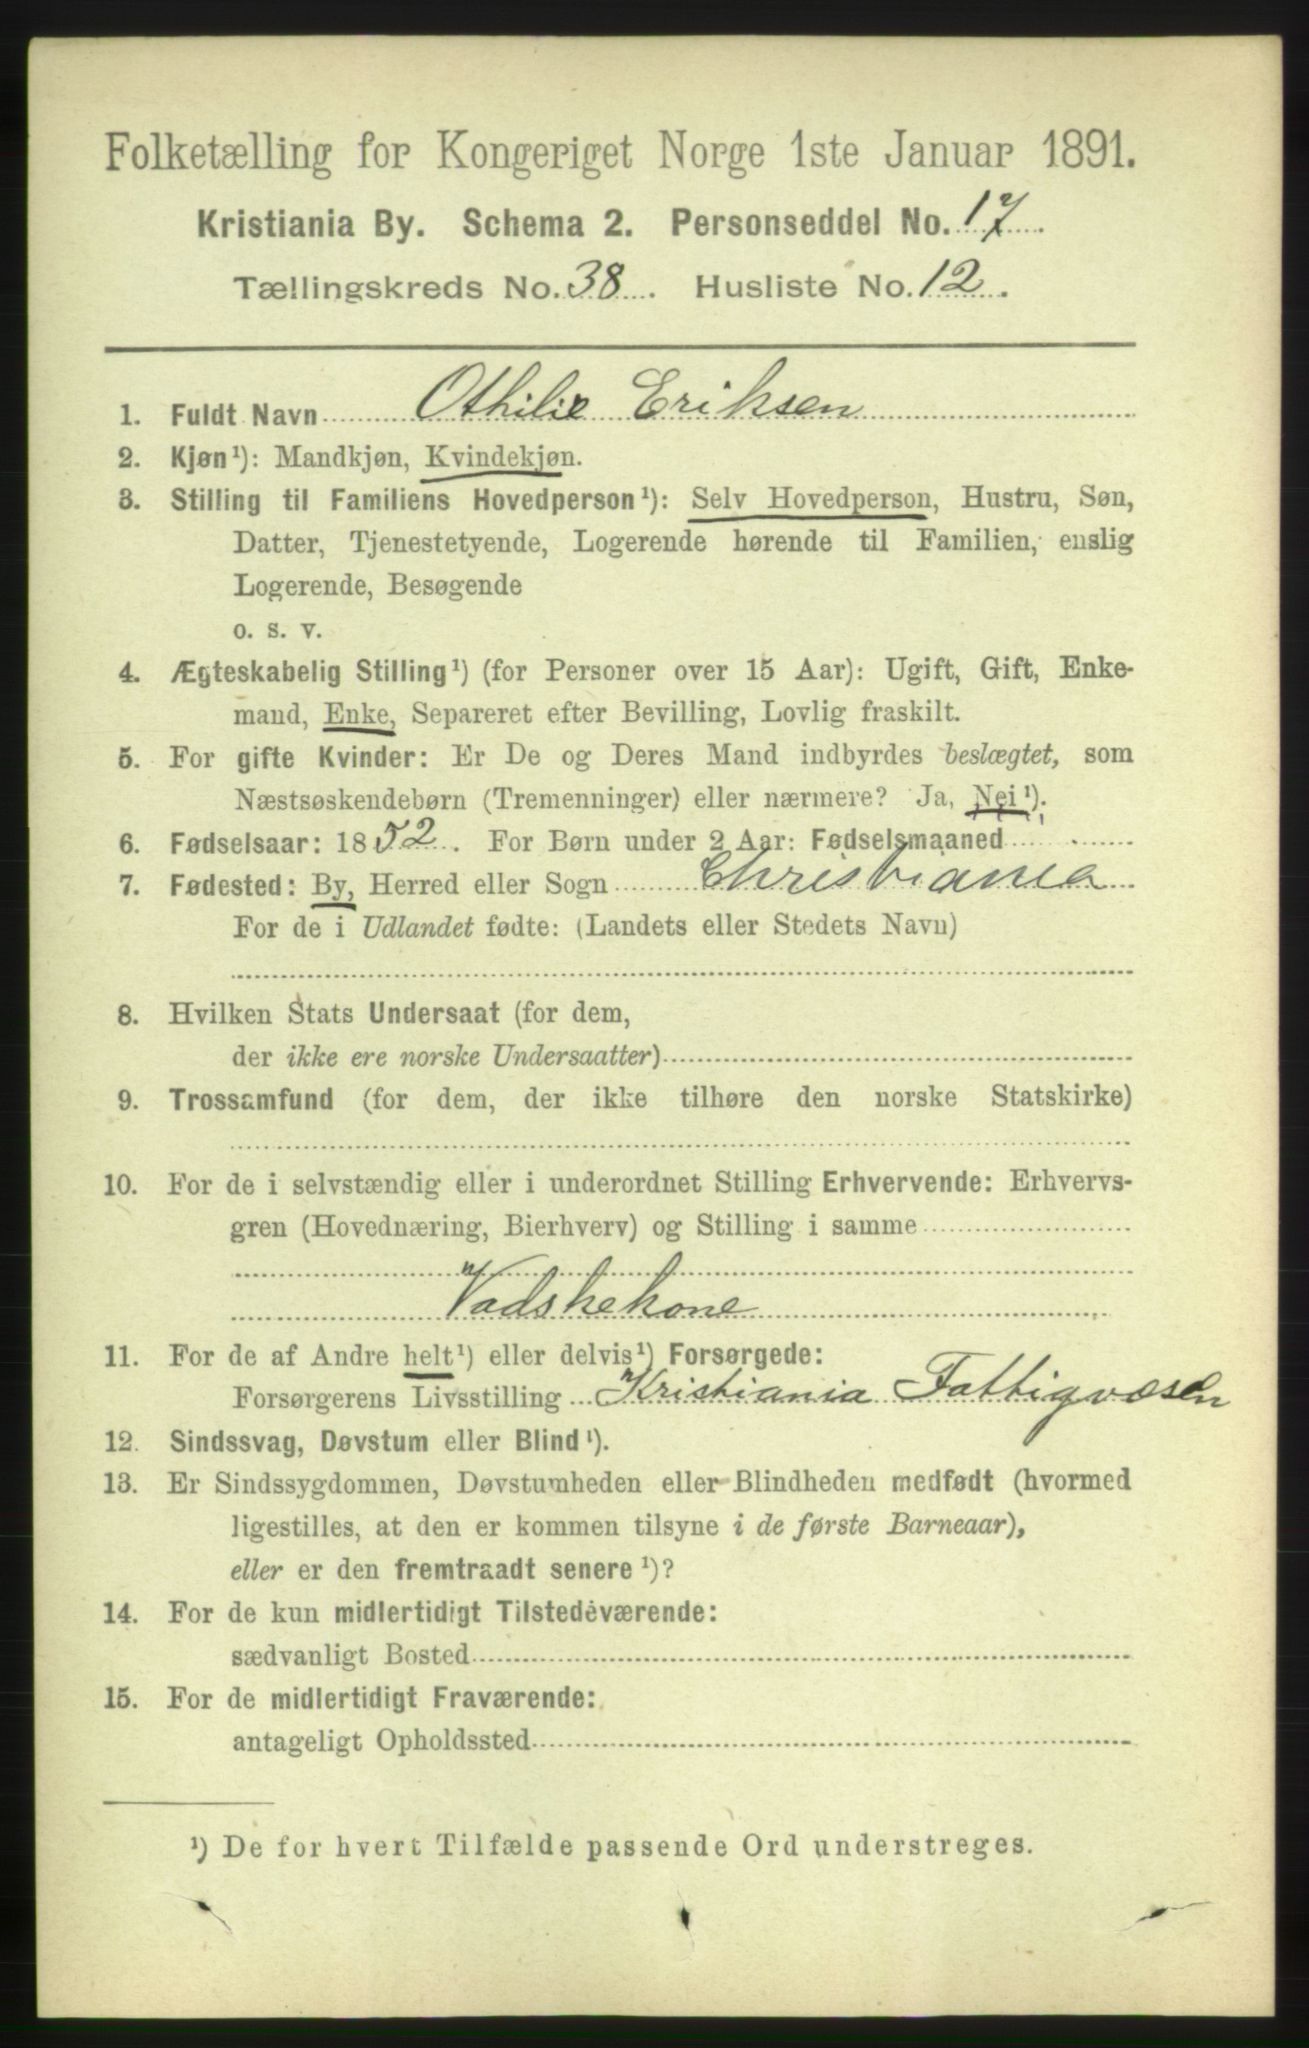 Folketælling for Kongeriget Norge 1ste Januar 1891.
Kristiania By. Schema 2. Personseddel No. 17
Tællingskreds No. 38. Husliste No. 12.
1. Fuldt Navn Othilie Eriksen
2. Kjøn¹): Mandkjøn, Kvindekjøn.
3. Stilling til Familiens Hovedperson¹): Selv Hovedperson, Hustru, Søn,
Datter, Tjenestetyende, Logerende hørende til Familien, enslig
Logerende, Besøgende
o. s. v.
4. Ægteskabelig Stilling¹) (for Personer over 15 Aar): Ugift, Gift, Enke-
mand, Enke, Separeret efter Bevilling, Lovlig fraskilt.
5. For gifte Kvinder: Er De og Deres Mand indbyrdes beslægtet, som
Næstsøskendebørn (Tremenninger) eller nærmere? Ja, Nei¹).
6. Fødselsaar: 1852. For Børn under 2 Aar: Fødselsmaaned
7. Fødested: By, Herred eller Sogn Christiania
For de i Udlandet fødte: (Landets eller Stedets Navn)
8. Hvilken Stats Undersaat (for dem,
der ikke ere norske Undersaatter)
9. Trossamfund (for dem, der ikke tilhøre den norske Statskirke)
10. For de i selvstændig eller i underordnet Stilling Erhvervende: Erhvervs-
gren (Hovednæring, Bierhverv) og Stilling i samme
Vadskekone
11. For de af Andre helt¹) eller delvis¹) Forsørgede:
Forsørgerens Livsstilling Kristiania Fattigvæsen
12. Sindssvag, Døvstum eller Blind¹).
13. Er Sindssygdommen, Døvstumheden eller Blindheden medfødt (hvormed
ligestilles, at den er kommen tilsyne i de første Barneaar),
eller er den fremtraadt senere¹)?
14. For de kun midlertidigt Tilstedeværende:
sædvanligt Bosted
15. For de midlertidigt Fraværende:
antageligt Opholdssted
¹) De for hvert Tilfælde passende Ord understreges.